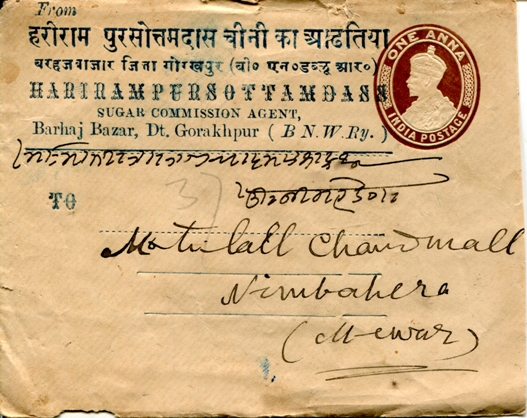 From
हरीराम पुरसोत्तमदास चीनी का आढतिया
बरहजबाजार जिला गोरखपुर (बी० एन०डब्लू आर०)
HARIRAMPURSOTTAMDASS
SUGAR COMMISSION AGENT,
Barhaj Bazar, Dt. Gorakhpur (B N.W.Ry.)
ONE ANNA
INDIA POSTAGE
TO
37
Motilall Chandmall
Nimbahera
(Mewar)